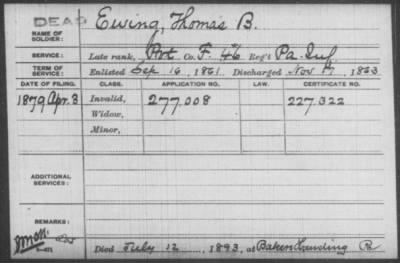 DEAD
NAME OF SOLDIER: Ewing, Thomas B.
SERVICE: Late rank, Pvt Co. F. 46 Reg't Pa. Inf.
TERM OF SERVICE: Enlisted Sep 16, 1861. Discharged Nov 17, 1863
DATE OF FILING. CLASS. APPLICATION NO. LAW. CERTIFICATE NO.
1879 Apr. 3 Invalid, 277.008 227.322
Widow,
Minor,
ADDITIONAL SERVICES:
REMARKS:
Died July 12, 1893, at Bakers Landing